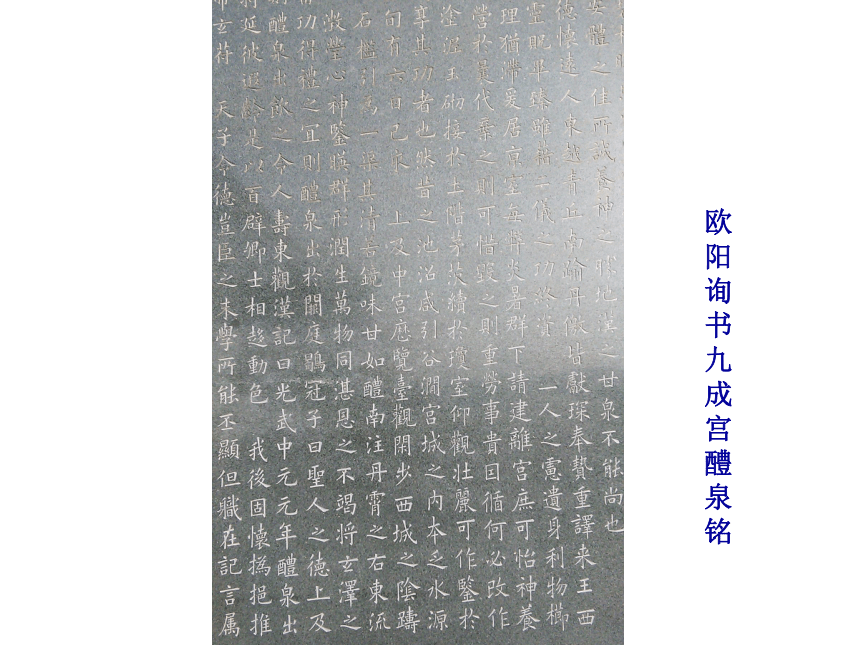 安體之佳所誠養神之勝地漢之甘泉不能尚也
德懷遠人東越青丘南踰丹儌皆獻琛奉贄重譯来王西
靈貺畢臻雖藉二儀之功終資 一人之慮遺身利物櫛
理猶滯爰居京室每弊炎暑群下請建離宮庶可怡神養
營於曩代棄之則可惜毀之則重勞事貴因循何必改作
塗泥玉砌接於土階茅茨續於瓊室仰觀壯麗可作鑒於
享其功者也然昔之池沼咸引谷澗宮城之内本乏水源
旬有六日己亥 上及中宮歷覽臺觀閑步西城之陰躊
石檻引為一渠其清若鏡味甘如醴南注丹霄之右東流
澂瑩心神鑒暎群形潤生萬物同湛恩之不竭将玄澤之
功得禮之宜則醴泉出於闕庭鶡冠子曰聖人之德上及
醴泉出飲之令人壽東觀漢記曰光武中元元年醴泉出
延彼遐齡是以百辟卿士相趍動色 我後固懷撝挹推
玄苻 天子令德豈臣之末學所能丕顯但職在記言属
欧阳询书九成宫醴泉铭